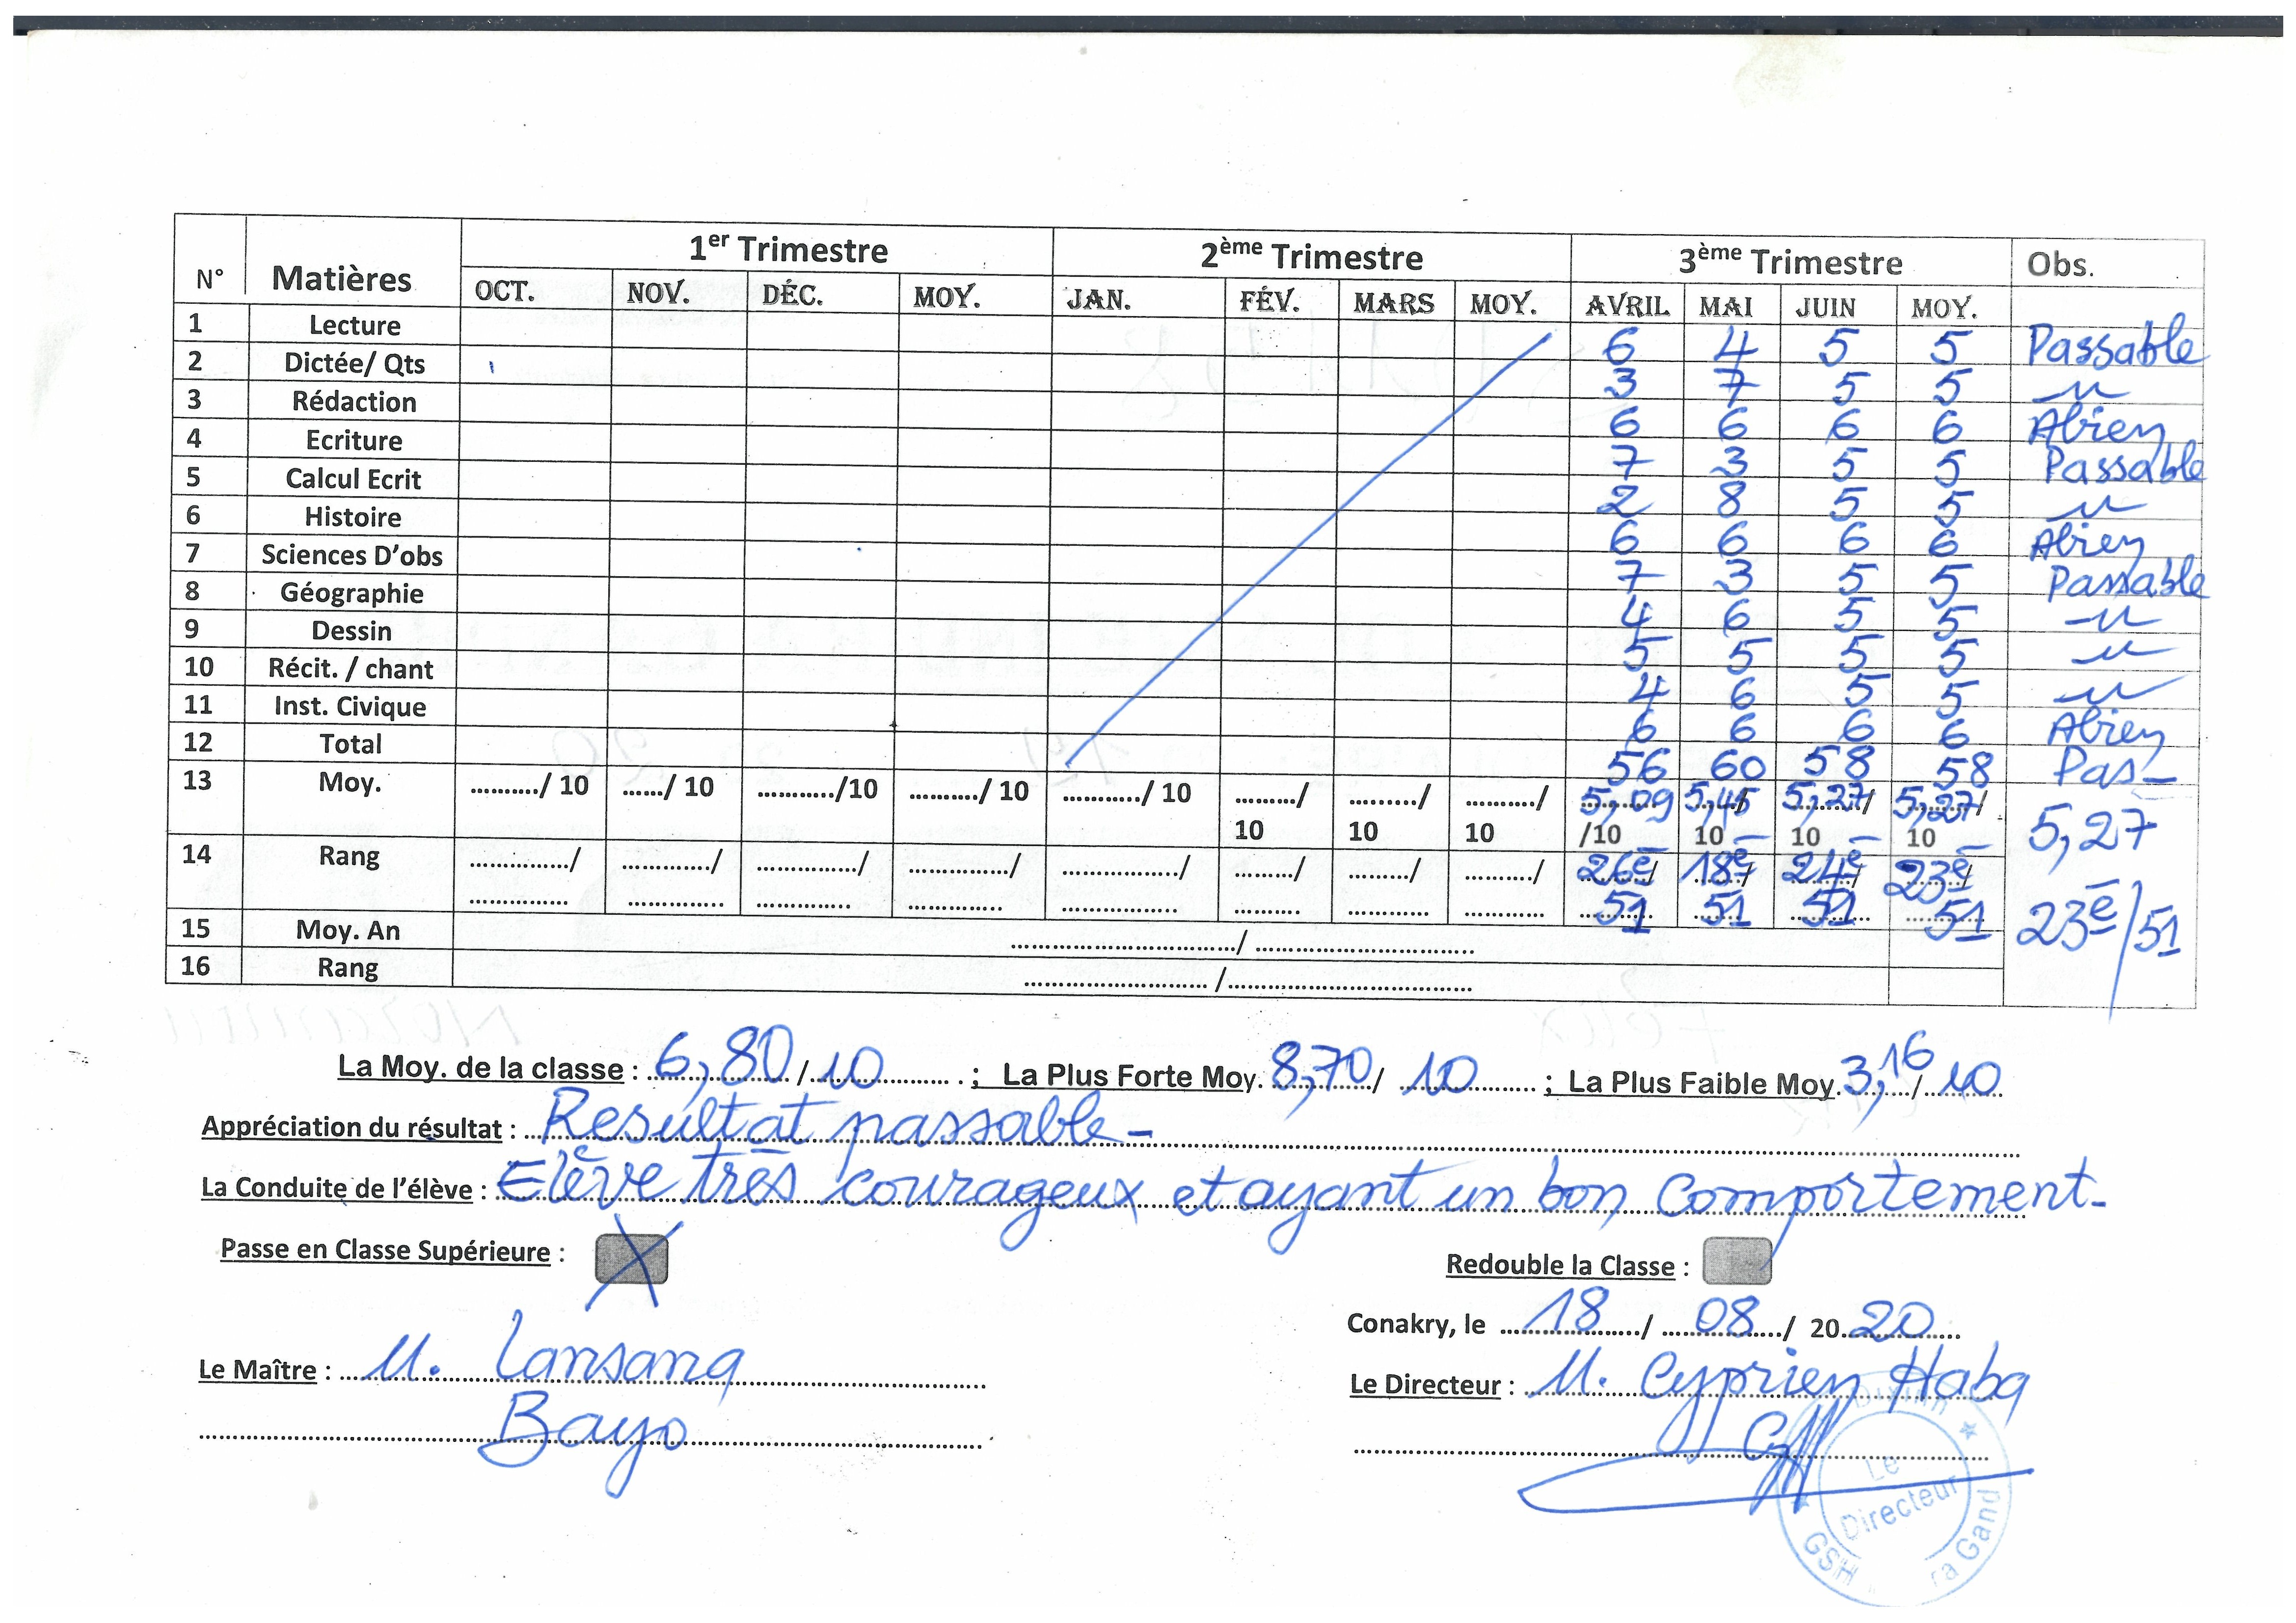 1er Trimestre 2ème Trimestre 3ème Trimestre Obs.
N° Matières OCT. NOV. DÉC. MOY. JAN. FÉV. MARS MOY. AVRIL MAI JUIN MOY.
1 Lecture 6 4 5 5 Passable
2 Dictée/ Qts 3 7 5 5 -"-
3 Rédaction 6 6 6 6 Abien
4 Ecriture 7 3 5 5 Passable
5 Calcul Ecrit 2 8 5 5 -"-
6 Histoire 6 6 6 6 Abien
7 Sciences D'obs 7 3 5 5 Passable
8 Géographie 4 6 5 5 -"-
9 Dessin 5 5 5 5 -"-
10 Récit. / chant 4 6 5 5 -"-
11 Inst. Civique 6 6 6 6 Abien
12 Total 56 60 58 58 Pas-
13 Moy. ........../ 10 ....../ 10 .........../10 ........../ 10 .........../ 10 ........./ 10 ........./ 10 ........../ 10 5,09 /10 5,45/ 10 5,27/ 10 5,27/ 10 5,27
14 Rang ............../ ............/ ............../ ............../ ................/ ......../ ......../ ........./ 26e/ 51 18e/ 51 24e/ 51 23e/ 51 23e/51
15 Moy. An ................................/ ................................
16 Rang ........................... /....................................
La Moy. de la classe : 6,80 / 10 ; La Plus Forte Moy. 8,70 / 10 ; La Plus Faible Moy. 3,16 / 10
Appréciation du résultat : Resultat passable-
La Conduite de l'élève : Elève très courageux et ayant un bon Comportement-
Passe en Classe Supérieure : X Redouble la Classe :
Conakry, le 18 / 08 / 20 20
Le Maître : M. Lansana Le Directeur : M. Cyprien Haba
Bayo
Dixinn
Le
Directeur
GSH ra Gand